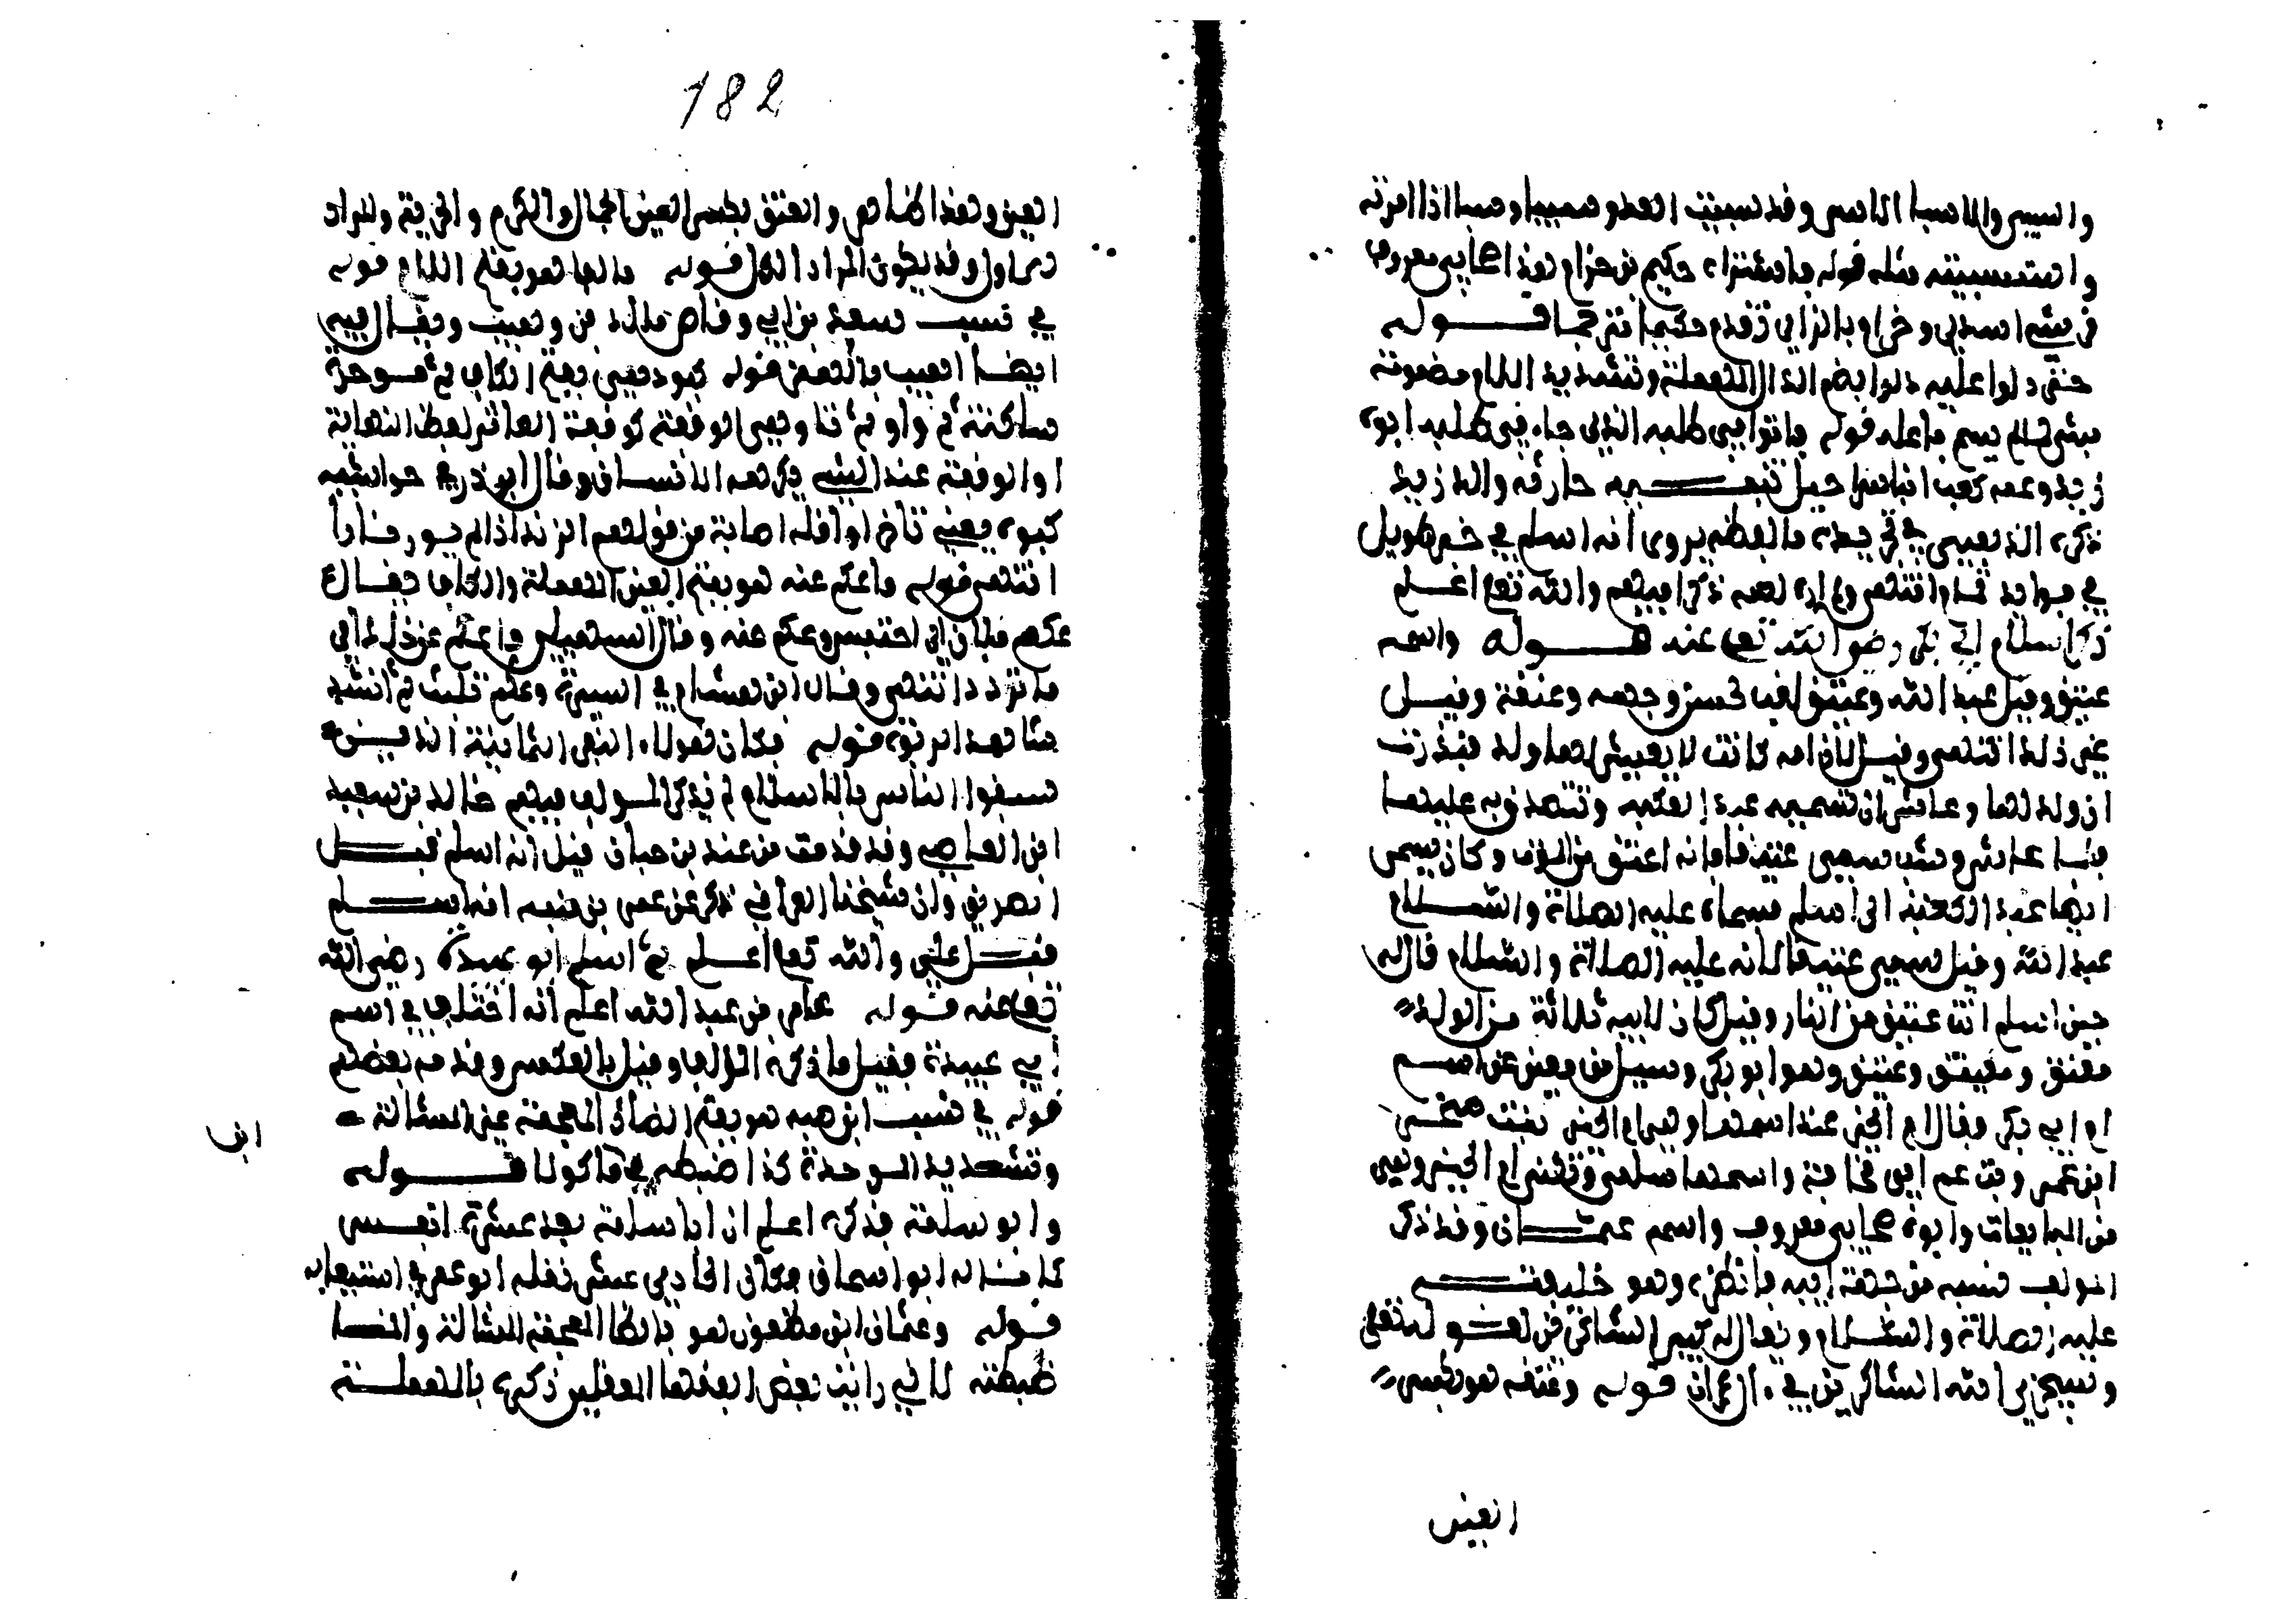 والسبي والاسبا الاسر وقد سبيت العدو سبيا وسبا اذا اسرته
واستسبيته مثله قوله فاشتراه حكيم بن حزام هذا صحابي معروف
قرشي اسدي وحزام بالزاي تقدم حكيم مترجما قوله
حتى دلوا عليه دلوا بضم الدال المهملة وتشديد اللام مضمومة
مبني لما لم يسم فاعله قوله فاتوا في طلبه الذي جاء في طلبه ابوه
زيد وعمه كعب ابنا شراحيل تنبيه حارثة والد زيد
ذكره الذهبي في تجريده ما لفظه يروى انه اسلم في خبر طويل
في فوايد تمام انتهى ولم اره لغيره ذكرا فيهم والله تعالى اعلم
ذكر اسلام ابي بكر رضي الله تعالى عنه قوله واسمه
عتيق وقيل عبد الله وعتيق لقب لحسن وجهه وعتقه وقيل
غير ذلك انتهى وقيل لان امه كانت لا يعيش لها ولد فنذرت
ان ولد لها وعاش ان تسميه عبد الكعبة وتتصدق به عليها
فلما عاش وشب سمي عتيقا فانه اعتق من الموت وكان يسمى
ايضا عبد الكعبة الى اسلم فسماه عليه الصلاة والسلام
عبد الله وقيل سمي عتيقا لانه عليه الصلاة والسلام قال له
حين اسلم انت عتيق من النار وقيل كان لابيه ثلاثة من الولد
معتق ومعيتق وعتيق وهو ابو بكر وسيل بن معين عن اسم
ام ابي بكر فقال ام الخير عند اسمها وهي ام الخير بنت صخر
ابن عمرو بنت عم ابي قحافة واسمها سلمى وتكنى ام الخير وهي
من المبايعات وابوه صحابي معروف واسمه عثمان وقد ذكر
المولف نسبه من جهة ابيه فانظره وهو خليفته
عليه الصلاة والسلام ويقال له كبير الشاكرين لقوله تعالى
وسيجزي الله الشاكرين في ال عمران قوله وعتقه هو بكسر
العين
182
العين وهذا ظاهر والعتق بكسر العين الجمال والكرم والحرية والمراد
الاول وقد يكون المراد الكل قوله مالها هو بفتح اللام قوله
في نسب سعد بن ابي وقاص مالك بن وهيب ويقال فيه
ايضا اهيب بالهمز قوله كبوة هي بفتح الكاف ثم موحدة
ساكنة ثم واو ثم تا وهي الوقفة كوقفة العاثر لفظ النهاية
او الوقفة عند الشي يكرهه الانسان وقال ابو ذر في حواشيه
كبوة يعني تاخر او قلة اصابة من قولهم الزند اذا لم يور نارا
انتهى قوله ما عكم عنه هو بفتح العين المهملة والكاف يقال
عكم فلان اي احتبس وعكم عنه وقال السهيلي ما عكم عن ذلك اي
ما تردد انتهى وقال ابن هشام في السيرة وعكم تلبث ثم انشد
شاهدا لرؤبة قوله فكان هولاء النفر الثمانية الذين
سبقوا الناس بالاسلام لم يذكر المولف فيهم خالد بن سعيد
ابن العاصي وقد قدمت من عند بن حبان قيل انه اسلم قبل
الصديق وان شيخنا العراقي ذكر عن عمر بن شبه انه اسلم
قبل علي والله تعالى اعلم ثم اسلم ابو عبيدة رضي الله
تعالى عنه قوله عامر بن عبد الله اعلم انه اختلف في اسم
ابي عبيدة فقيل ما ذكره المولف وقيل بالعكس وقدمه بعضهم
قوله في نسب ابن ضبه هو بفتح الضاد المعجمة غير المشالة
وتشديد الموحدة كذا اضبطه في قاكولا قوله
وابو سلمة فذكره اعلم ان ابا سلمة بعد عشرة انفس
كما قاله ابو اسحاق فكان الحادي عشر نقله ابو عمر في استيعابه
قوله وعثمان ابن مظعون هو بالظا المعجمة المشالة وانما
ضبطته لاني رايت بعض الفقها المغفلين ذكره بالمهملة
ابن